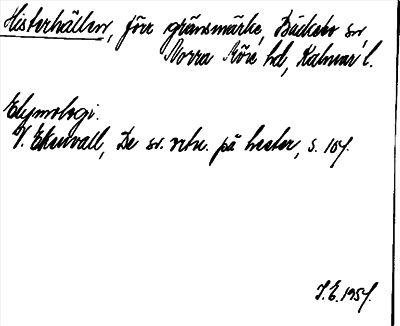 Histerhällen, förr gränsmärke, Bäckebo sn,
Norra Möre hd, Kalmar l.
Etymologi.
V. Ekenvall, De sv. ortn. på hester, s. 107.
J.E. 1957.